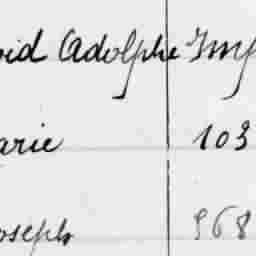 oid Adolphe Imp
arie 103
oseph 968